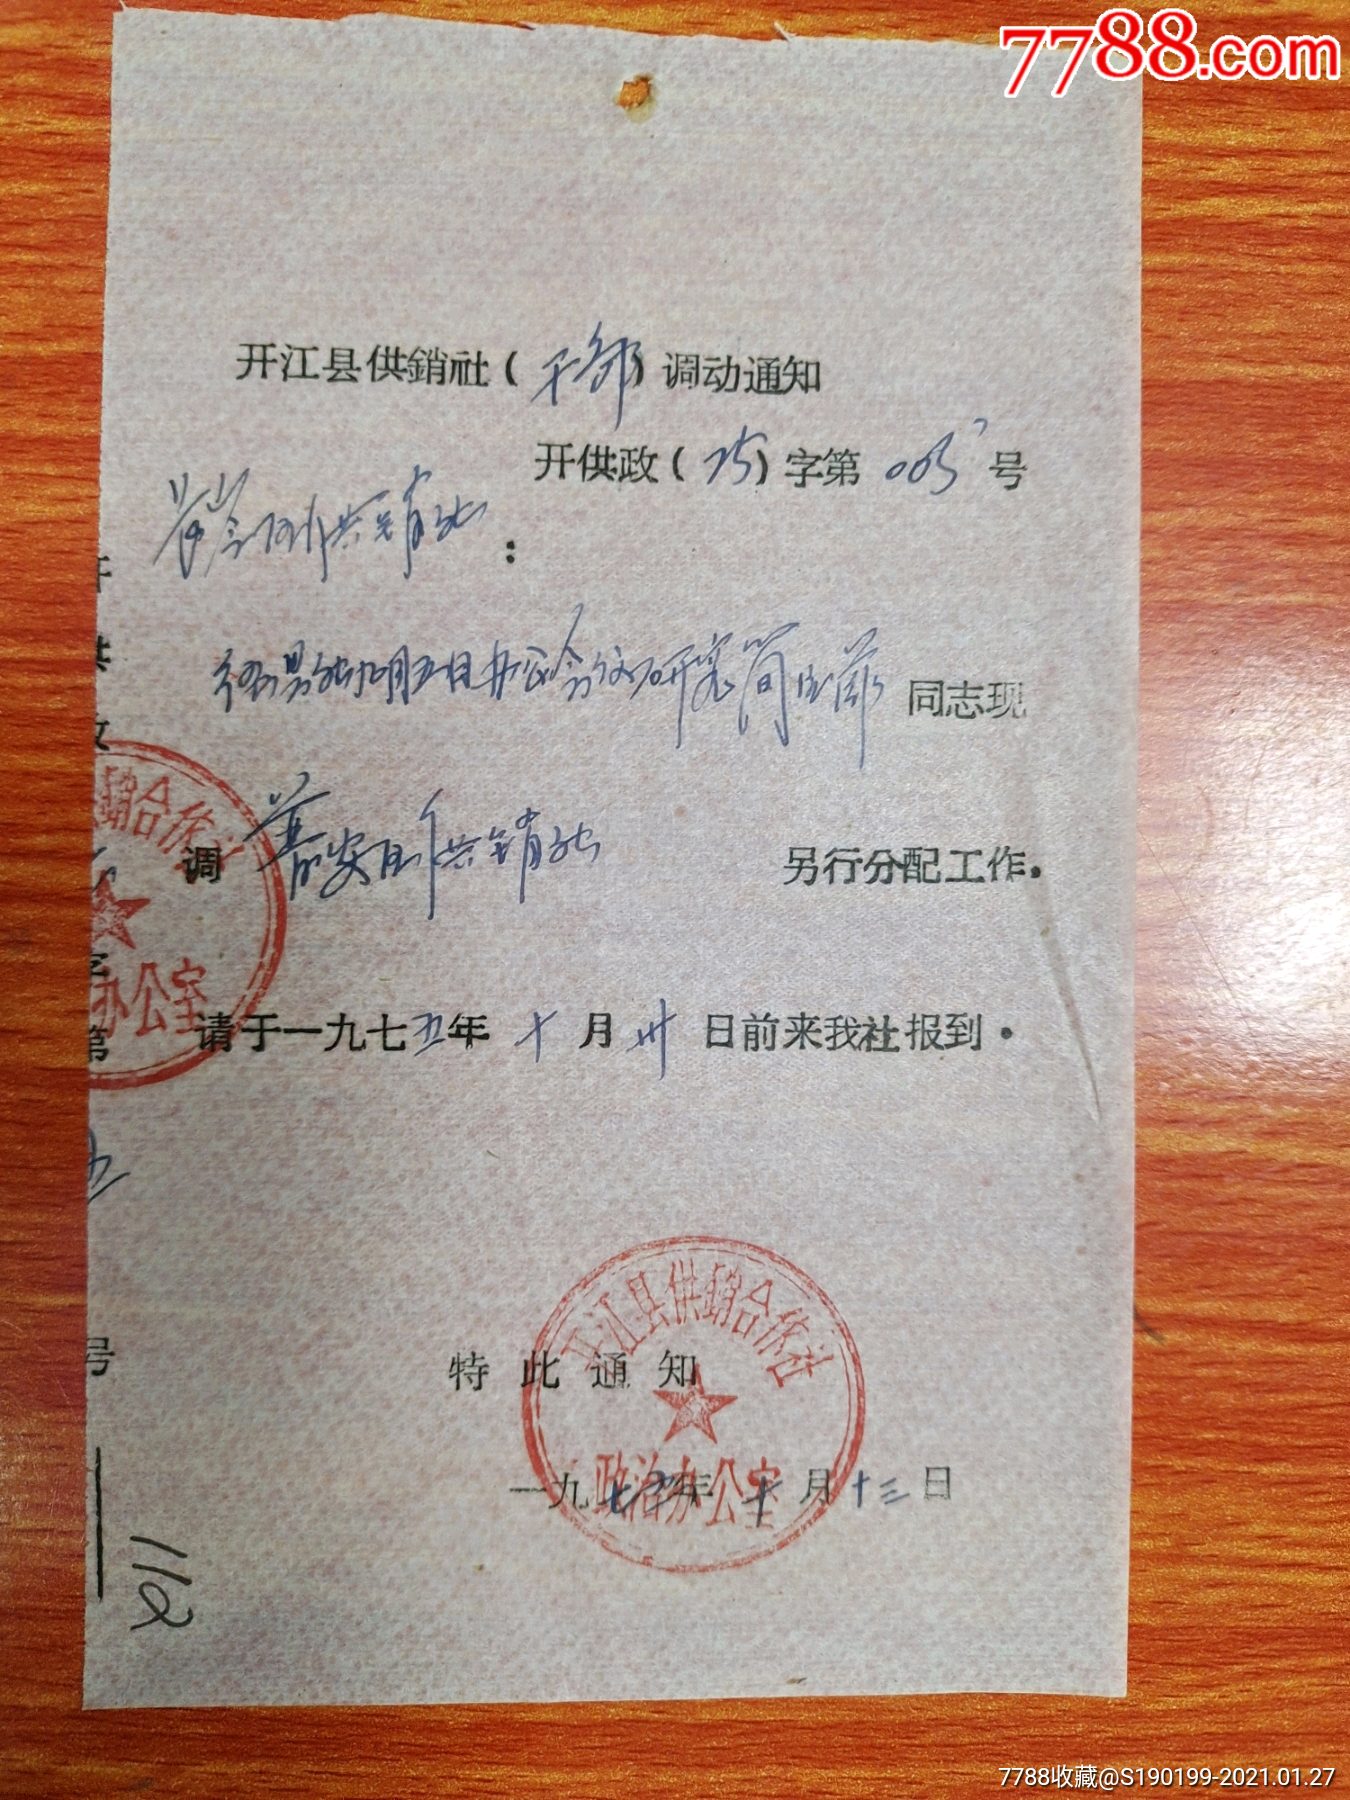 7788.com
开江县供銷社(干部)调动通知
开供政(75)字第005号
供销社:
经县社九月五日办公会议研究简 同志现
调普安区供销社 另行分配工作.
请于一九七五年十月卅日前来我社报到.
特此通知
一九七五年十月十三日
开江县供銷合作社
政治办公室
开供政
字第
五
号
銷合作社
办公室
112
7788收藏@S190199-2021.01.27